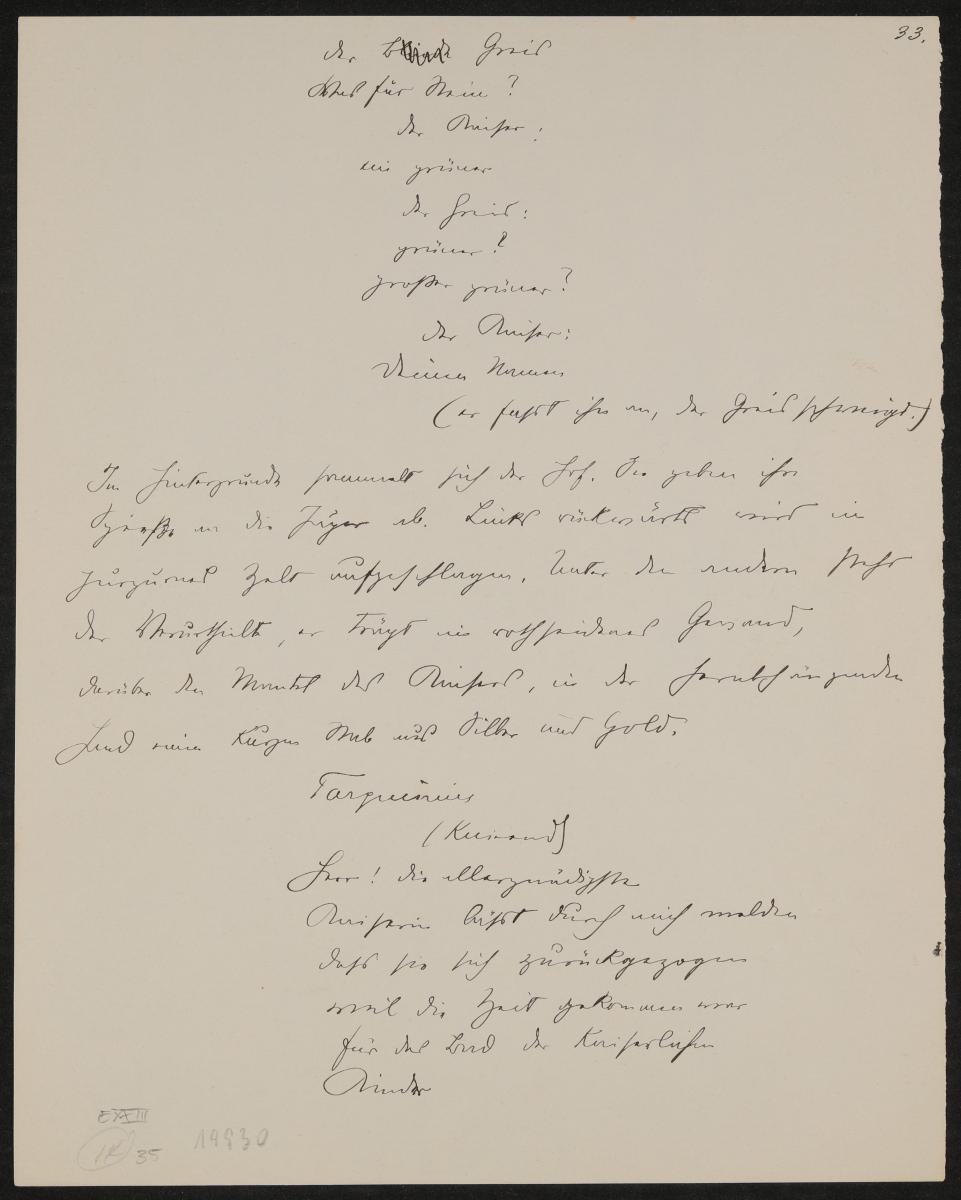 33.
der Blinde Greis
Was für Stein?
der Kaiser:
ein grüner
der Greis:
grüner?
großer grüner?
der Kaiser:
Deinen Namen
(er fasst ihn an, der Greis schweigt.)
Im Hintergrunde sammelt sich der Hof. Sie geben ihre
Spieße an die Jäger ab. Links rückwärts wird ein
Zelt aufgeschlagen. Unter den andern steht
der Verurtheilte, er trägt ein rothseidenes Gewand,
darüber den Mantel des Kaisers, in der herabhängenden
Hand einen kurzen Stab aus Silber und Gold.
Tarquinius
(knieend)
Herr! die allergnädigste
Kaiserin läßt durch mich melden
dass sie sich zurückgezogen
weil die Zeit gekommen war
für das Bad der Kaiserlichen
Kinder
EXXIII
35
19930